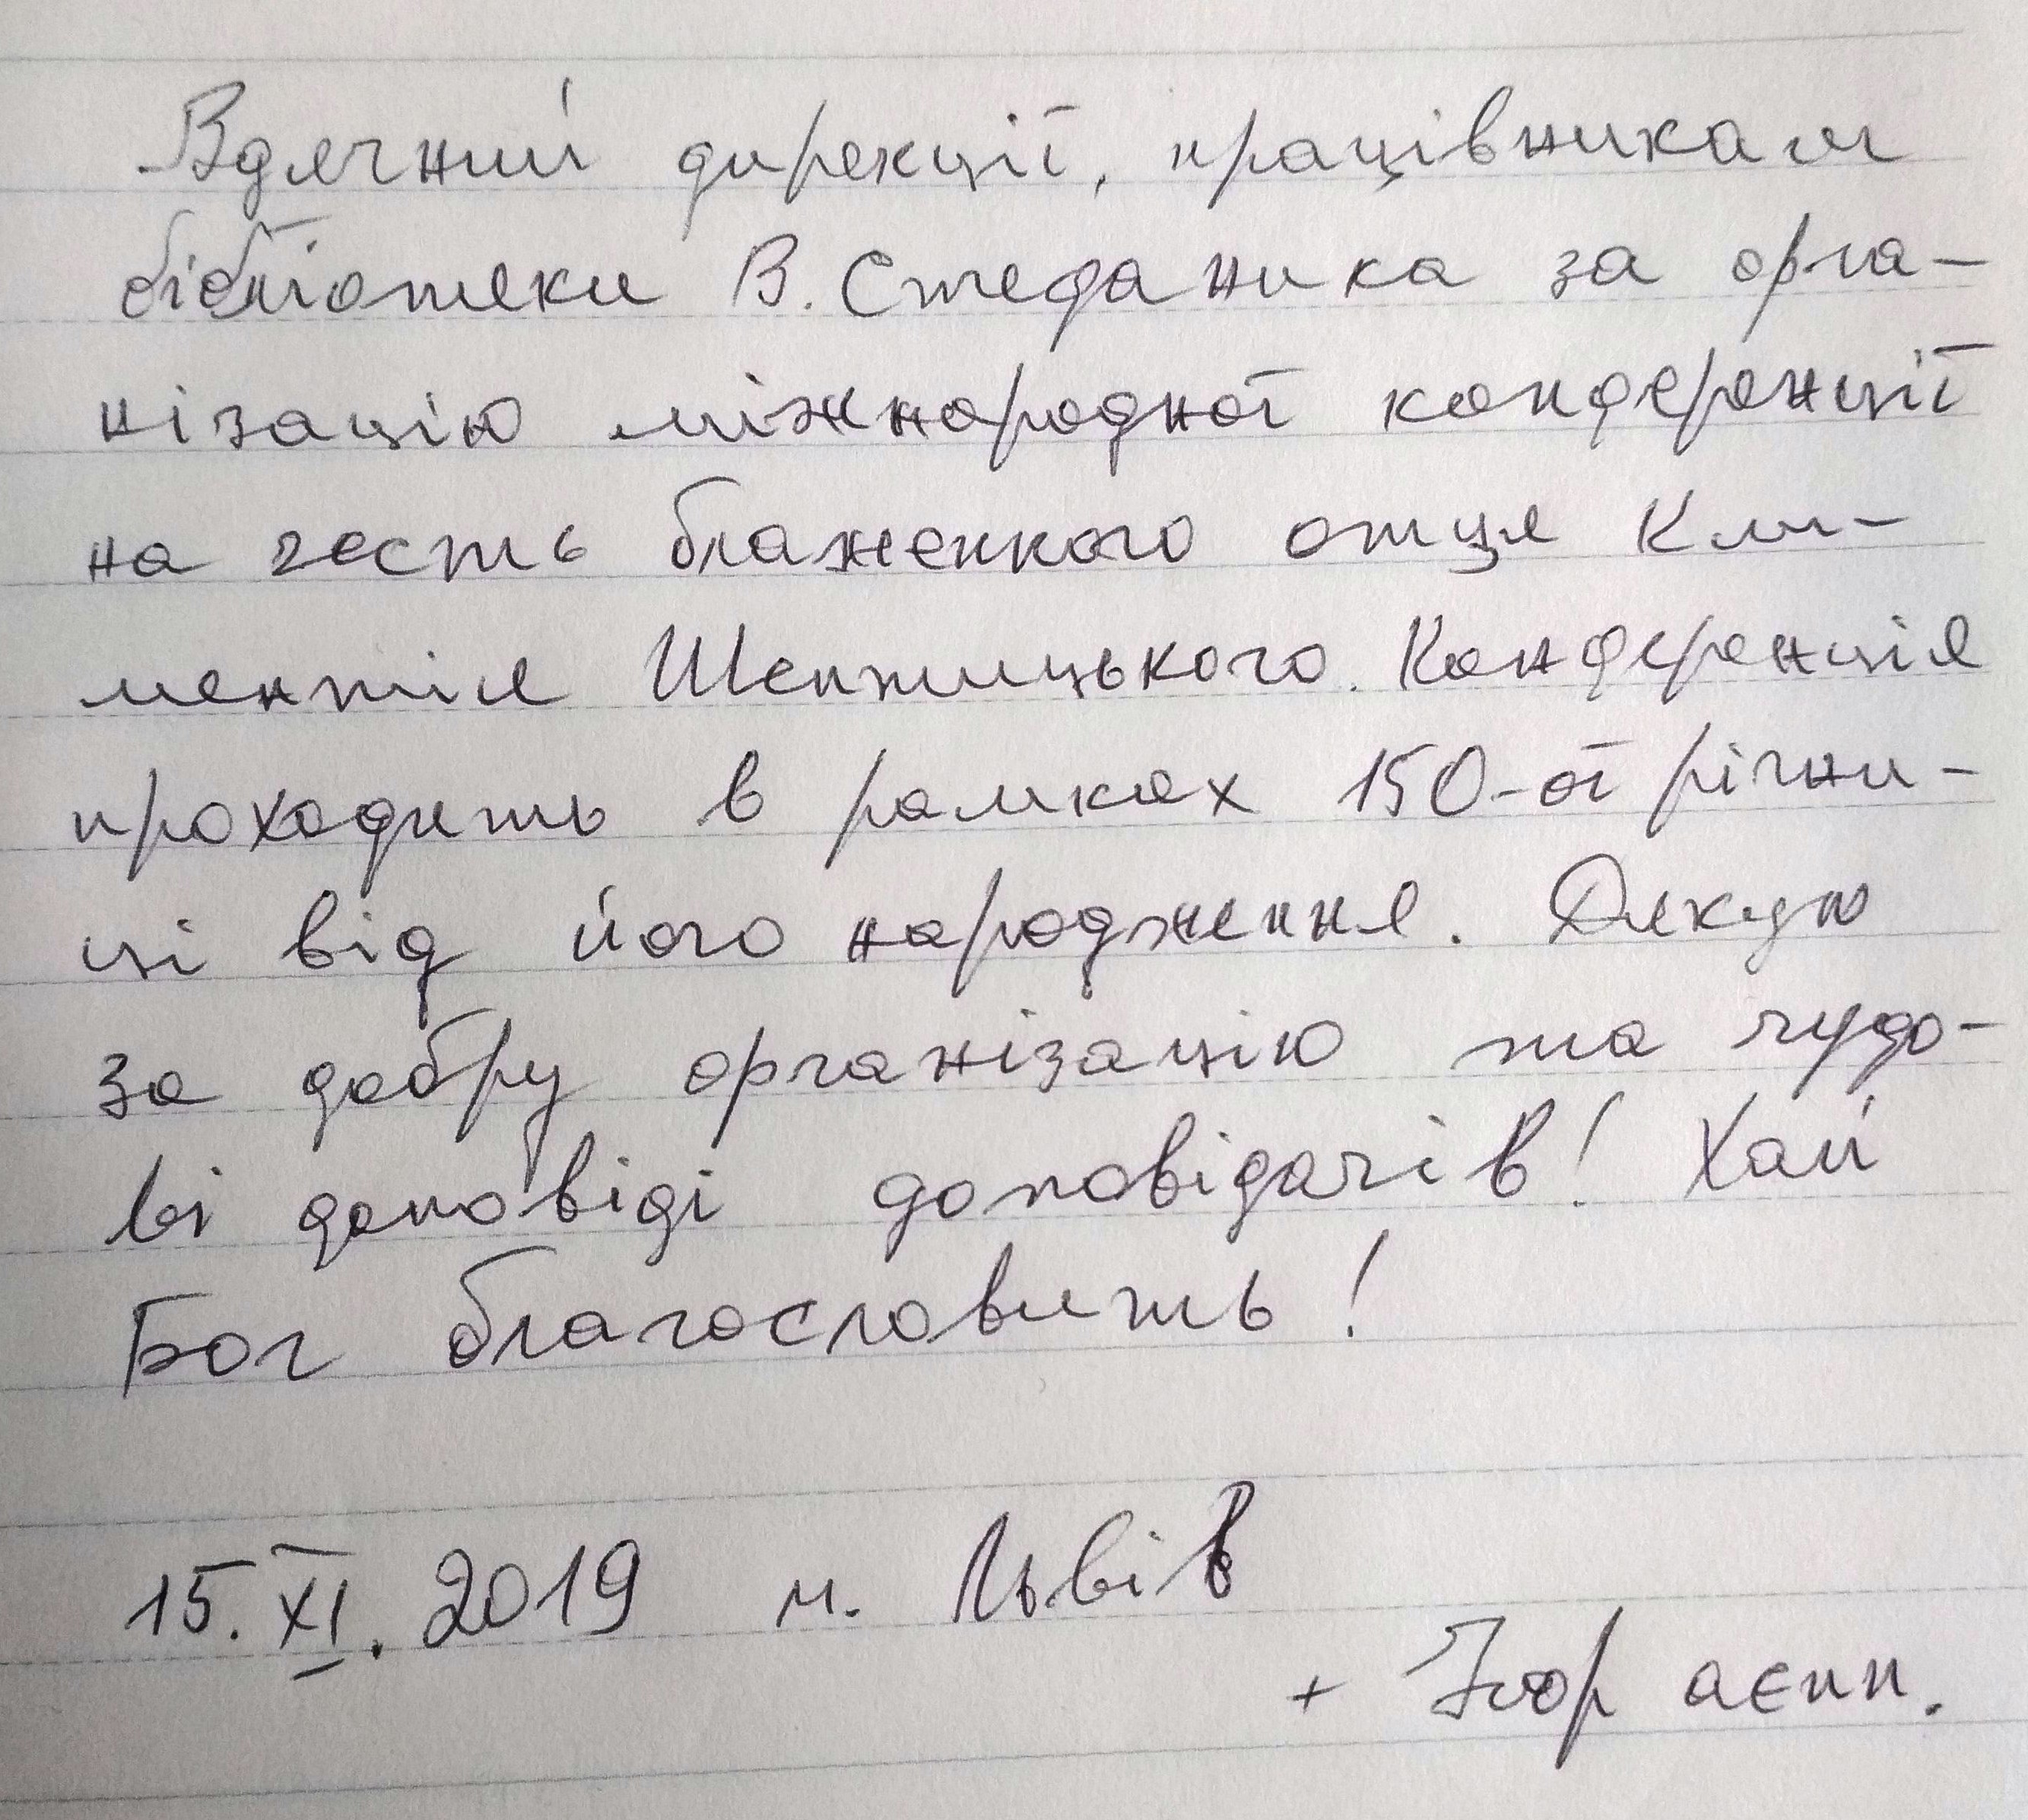 Вдячний дирекції, працівникам
бібліотеки В. Стефаника за орга-
нізацію міжнародної конференції
на честь блаженного отця Кли-
ментія Шептицького. Конференція
проходить в рамках 150-ої річни-
ці від його народження. Дякую
за добру організацію та чудо-
ві доповіді доповідачів! Хай
Бог благословить!
15. XI. 2019 м. Львів
+ Ігор аєпп.